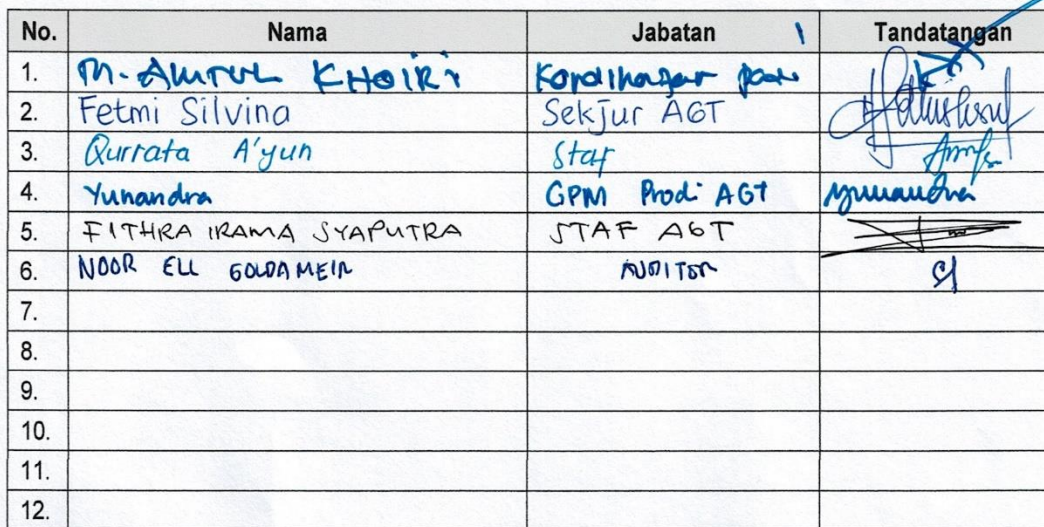 No. Nama Jabatan Tandatangan
1. M. Amrul KHOIRI Kordinator Prodi
2. Fetmi Silvina Sekjur AGT
3. Qurrata A'yun Staf
4. Yunandra GPM Prodi AGT Yunandra
5. FITHRA IRAMA SYAPUTRA STAF AGT
6. NOOR ELL GOLDAMEIR AUDITOR
7.
8.
9.
10.
11.
12.